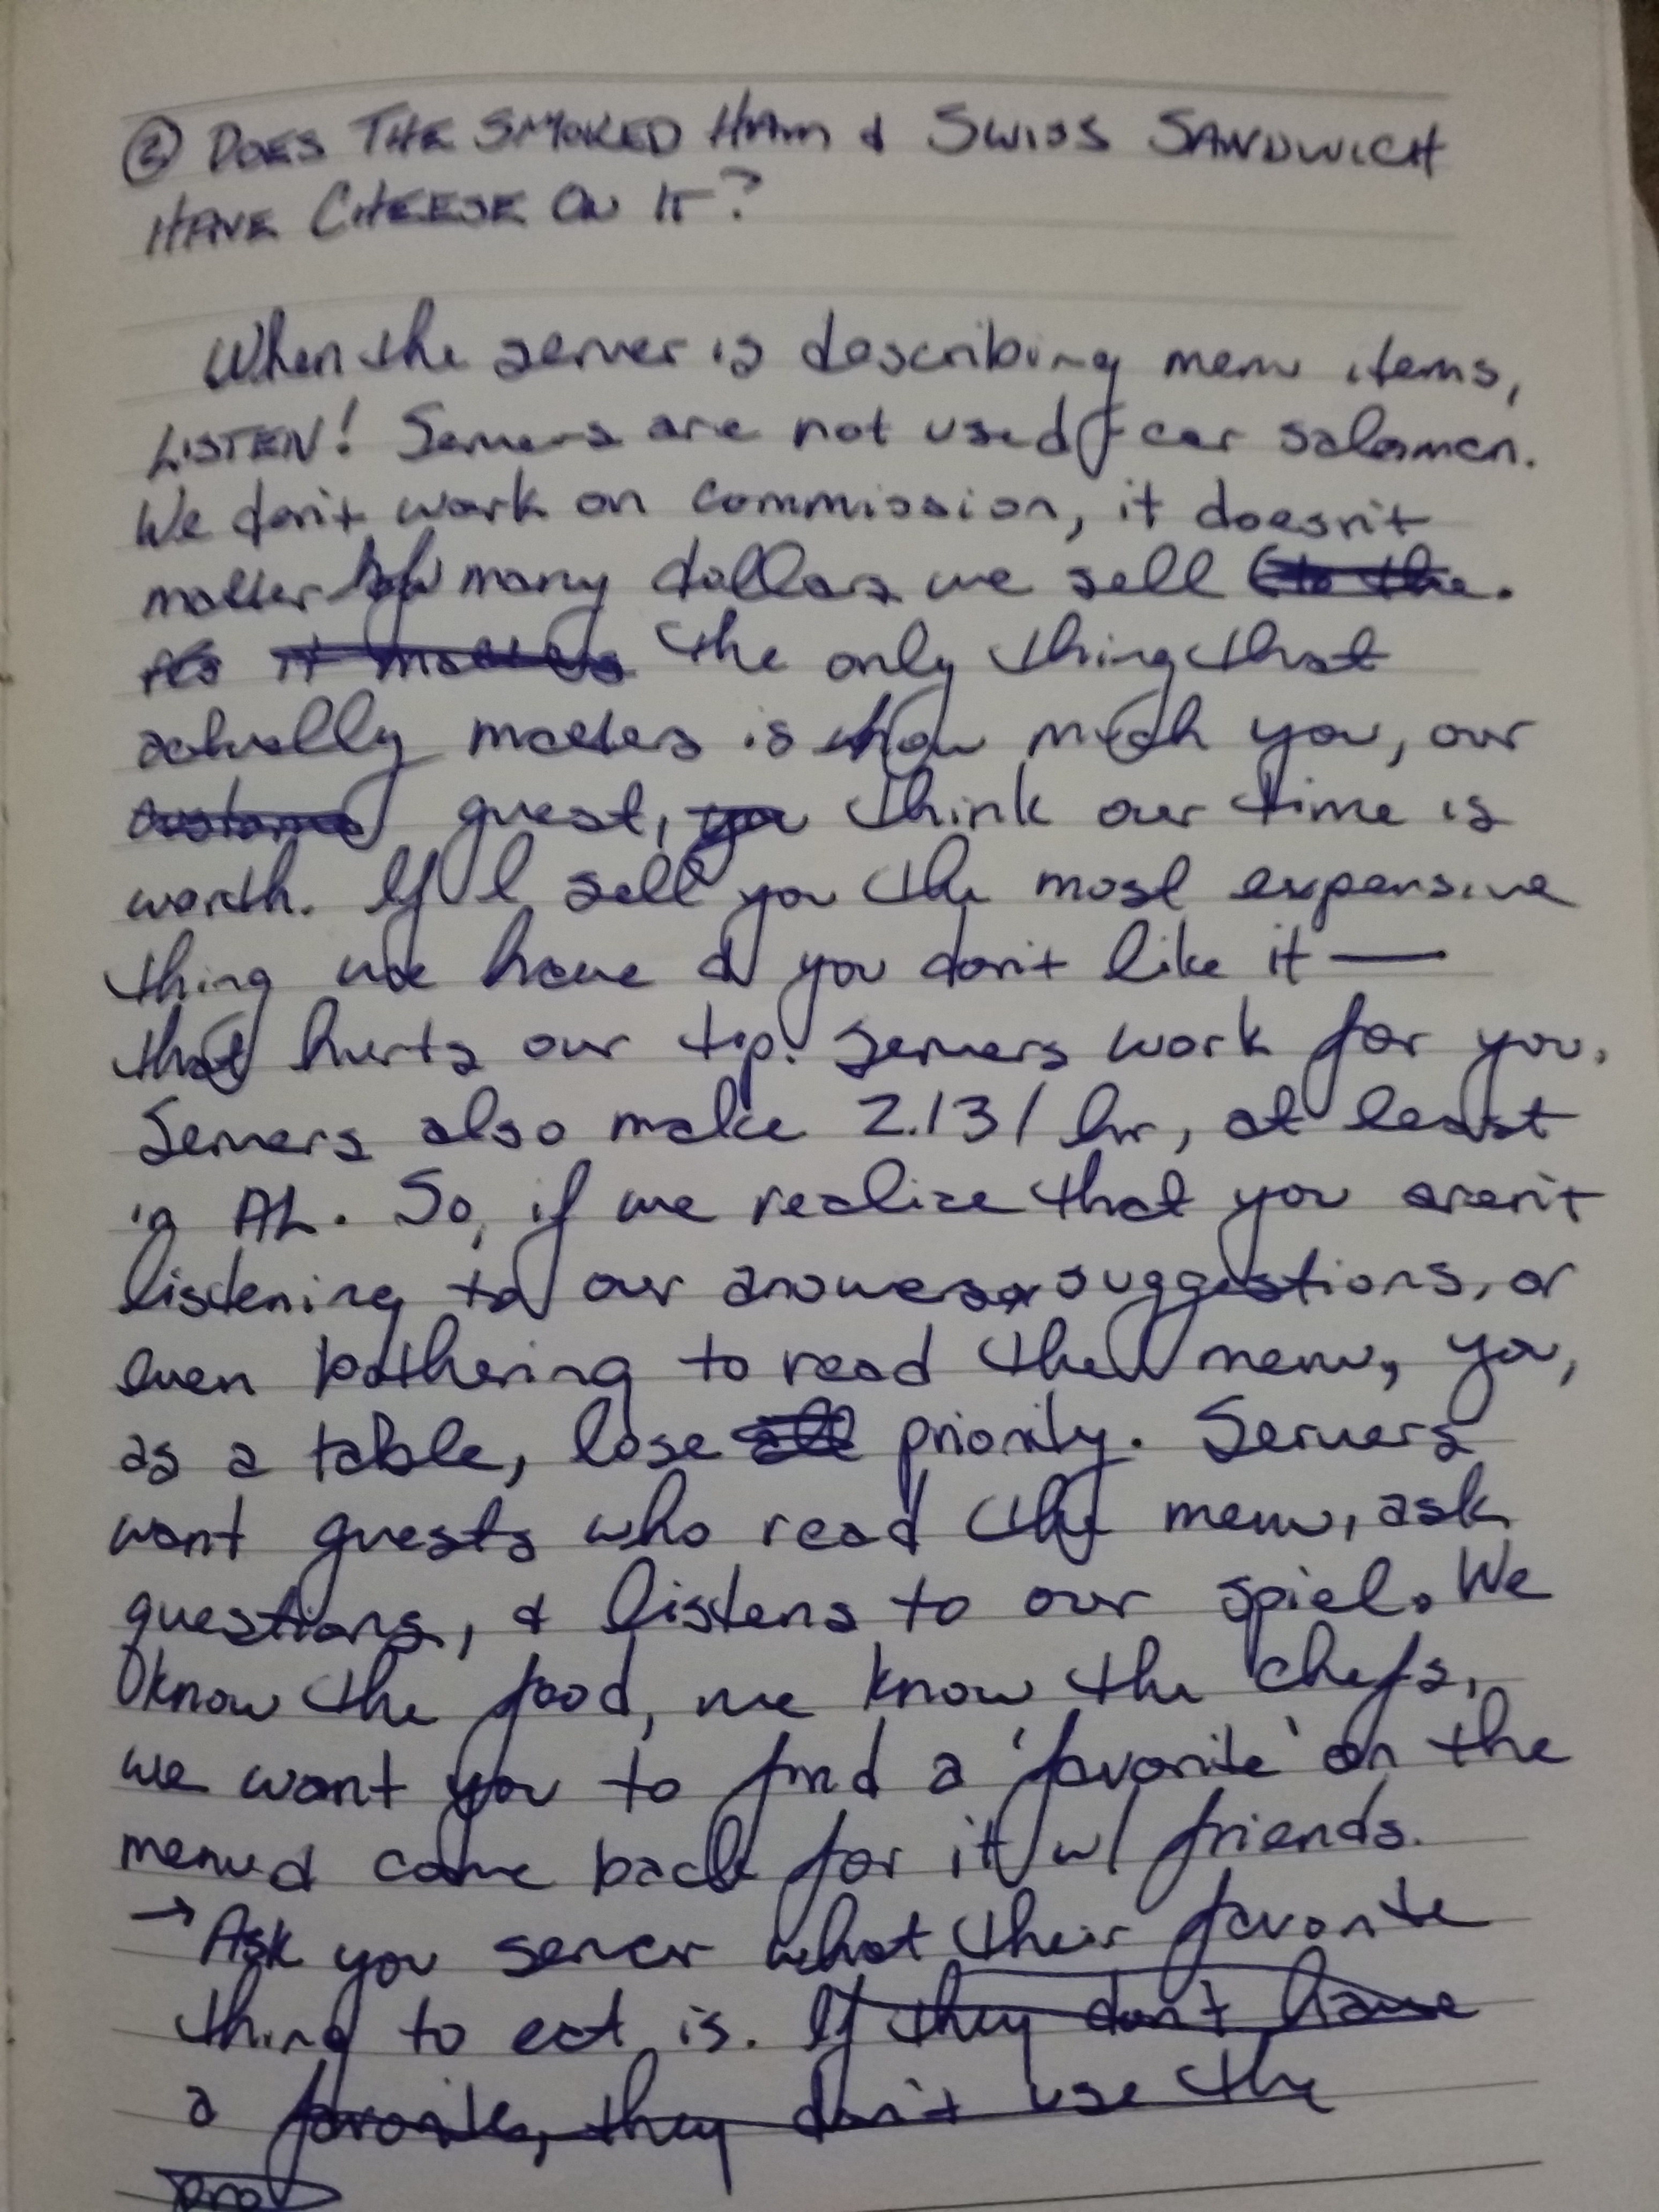 ② DOES THE SMOKED HAM & SWISS SANDWICH
HAVE CHEESE ON IT?
When the server is describing menu items,
LISTEN! Servers are not used car salesmen.
We don't work on commission, it doesn't
matter how many dollars we sell (to the.
it matters the only thing that
actually matters is how much you, our
customer guest, you think our time is
worth. If I sell you the most expensive
thing we have & you don't like it —
that hurts our tip. Servers work for you.
Servers also make 2.13/hr, at least
in AL. So, if we realize that you aren't
listening to our answers or suggestions, or
even bothering to read the menu, you,
as a table, lose all priority. Servers
want guests who read the menu, ask
questions, & listens to our spiel. We
know the food, we know the chefs,
we want you to find a 'favorite' on the
menu & come back for it w/ friends.
→ Ask you server what their favorite
thing to eat is. If they don't have
a favorite, they don't use the